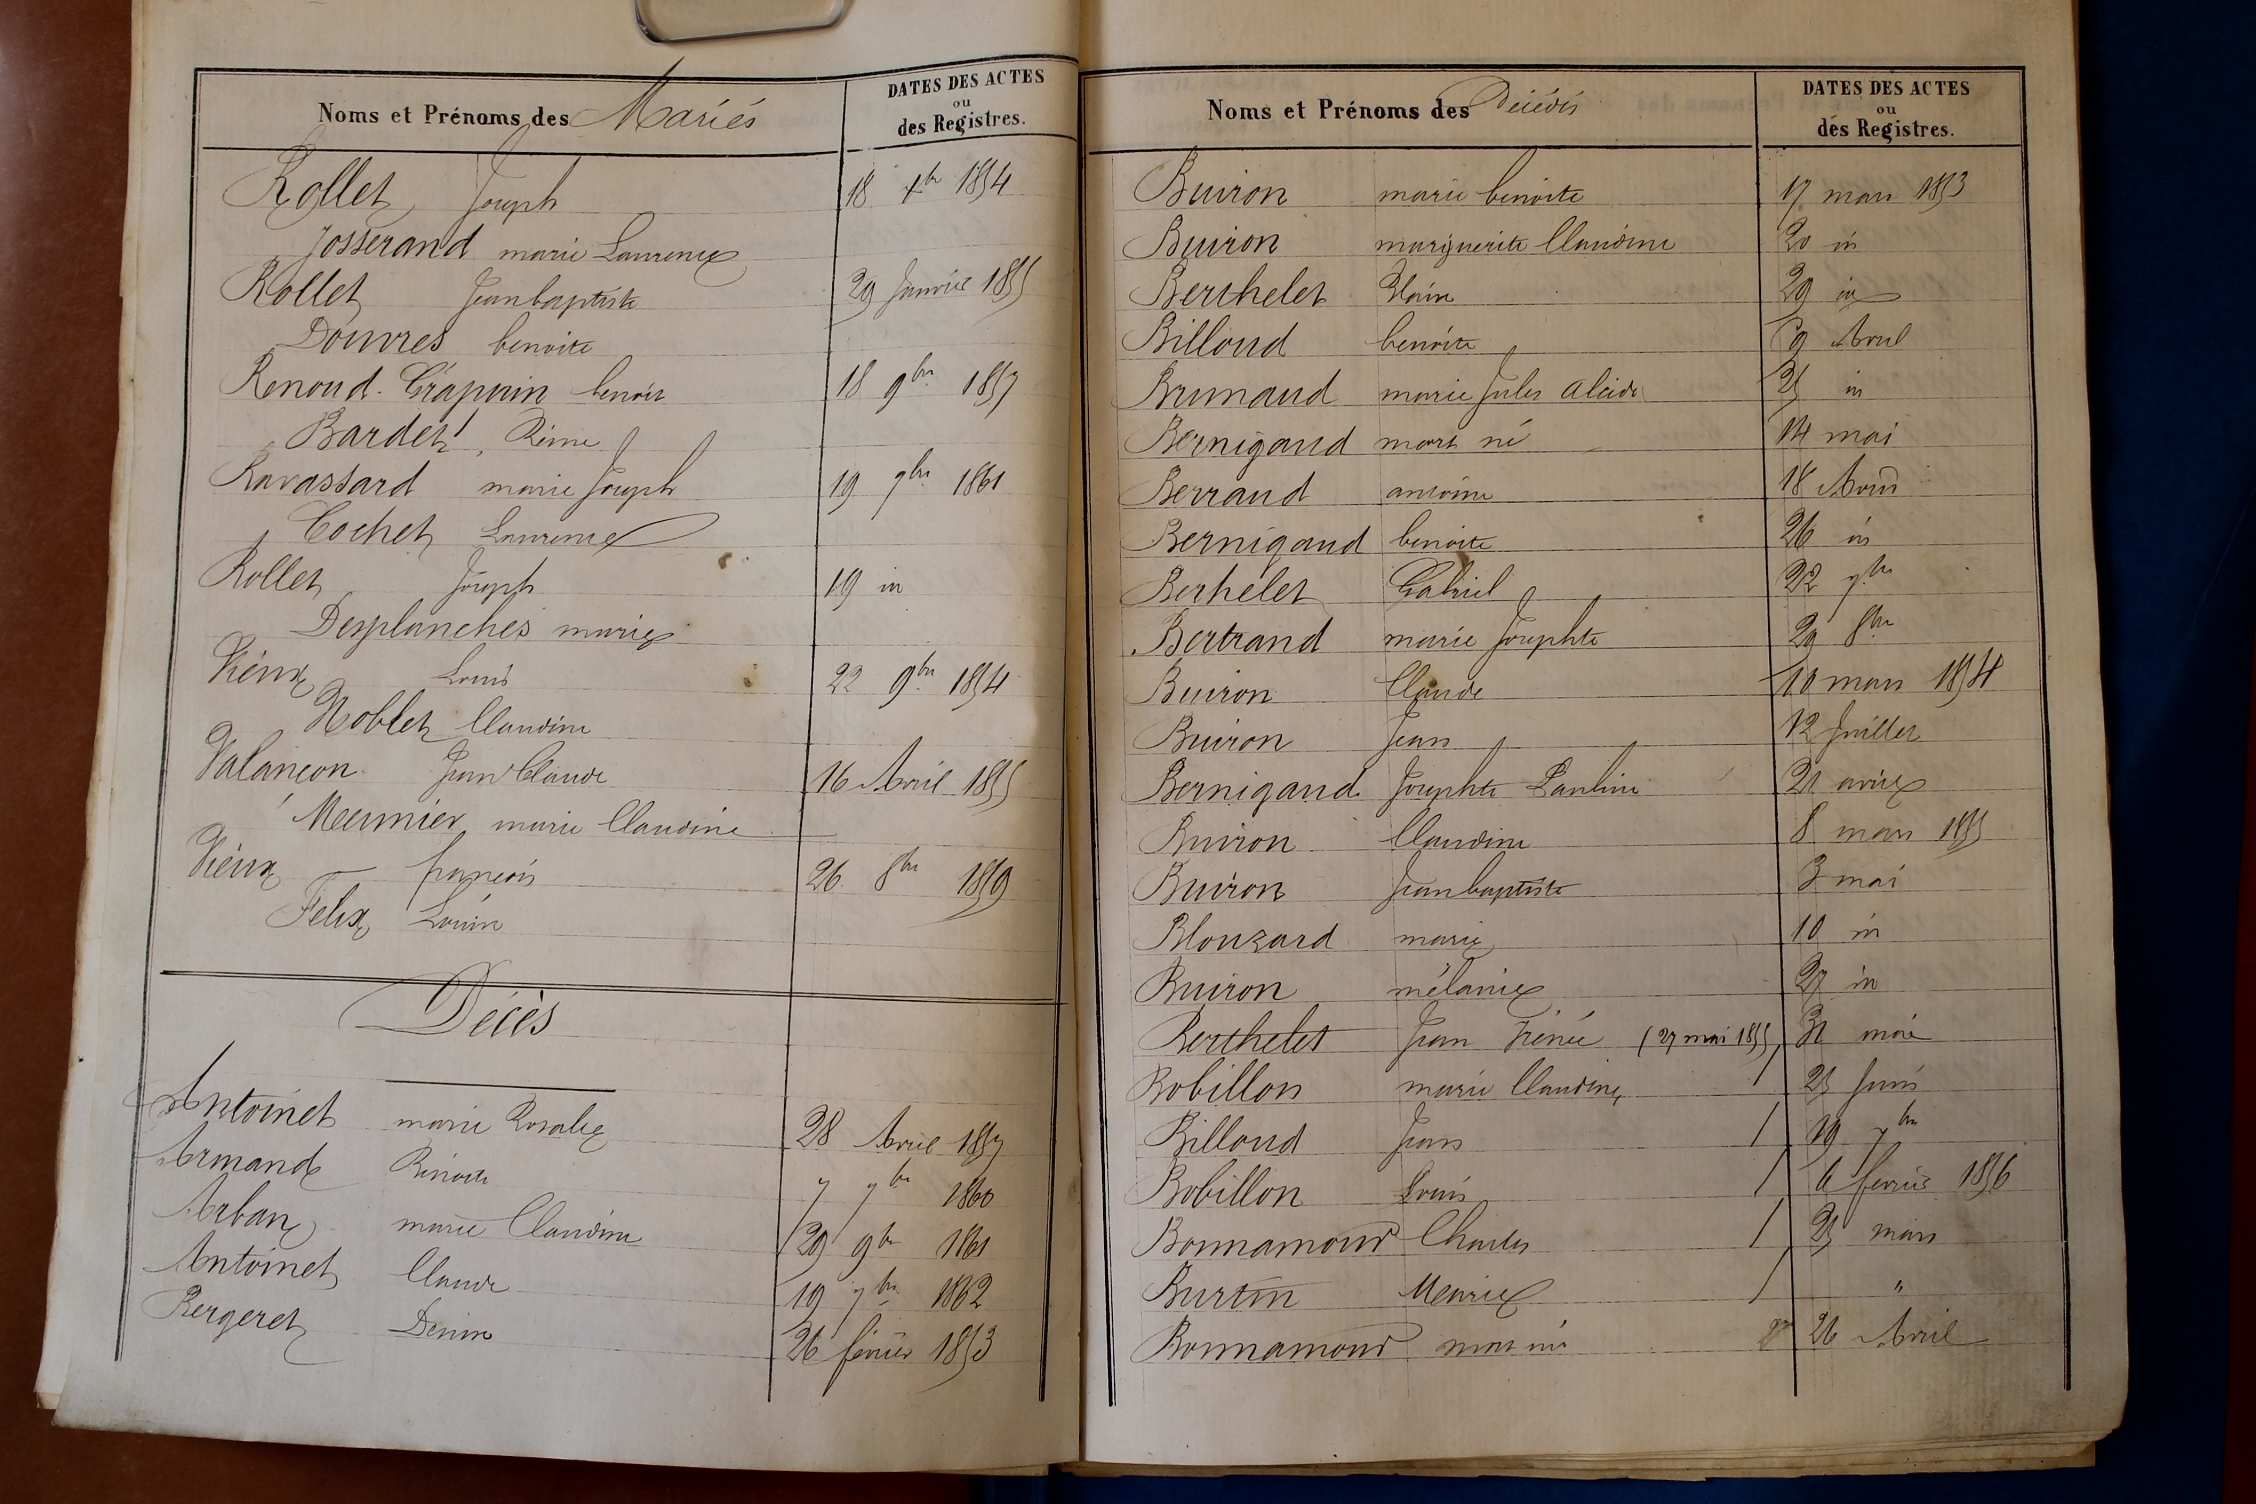 Noms et Prénoms des Mariés
DATES DES ACTES
ou
des Registres.
Rollet Joseph 18 xbre 1854
Josserand marie Laurence
Rollet Jean baptiste 29 Janvier 1855
Douvres benoite
Renoud-Grappin benoit 18 9bre 1857
Bardet, Reine
Ravassard marie Joseph 19 7bre 1861
Cochet Laurence
Rollet Joseph 19 id
Desplanches marie
Viéux Louis 22 9bre 1854
Noblet Claudine
Valançon Jean Claude 16 Avril 1855
Meunier marie Claudine
Viéux françois 26 8bre 1859
Felix Louise
Décès
Antoinet marie Rosalie 28 Avril 1857
Armand Benoite 7 7bre 1860
Arban marie Claudine 29 9bre 1861
Antoinet Claude 19 7bre 1862
Bergeret Denise 26 février 1853
Noms et Prénoms des Décédés
DATES DES ACTES
ou
des Registres.
Buiron marie benoite 17 mars 1853
Buiron marguerite Claudine 20 id
Berthelet 29 id
Billoud benoite 9 Avril
Brunaud marie Jules Alcide 25 id
Bernigaud mort né 14 mai
Berraud antoine 18 Août
Bernigaud benoite 26 id
Berhelet Gabriel 22 7bre
Bertrand marie Josephte 29 8bre
Buiron Claude 10 mars 1854
Buiron Jean 12 Juillet
Bernigaud Josephte Pauline 21
Buiron Claudine 8 mars 1855
Buiron Jean baptiste 3 mai
Blouzard marie 10 id
Buiron mélanie 27 id
Berthelet Jean Irénée (27 mai 1855) 31 mai
Bobillon marie Claudine 25 Juin
Billoud Jean 19 7bre
Bobillon Louis 6 février 1856
Bonnamour Charles 25 mars
Burtin "
Bonnamour mort né 26 Avril